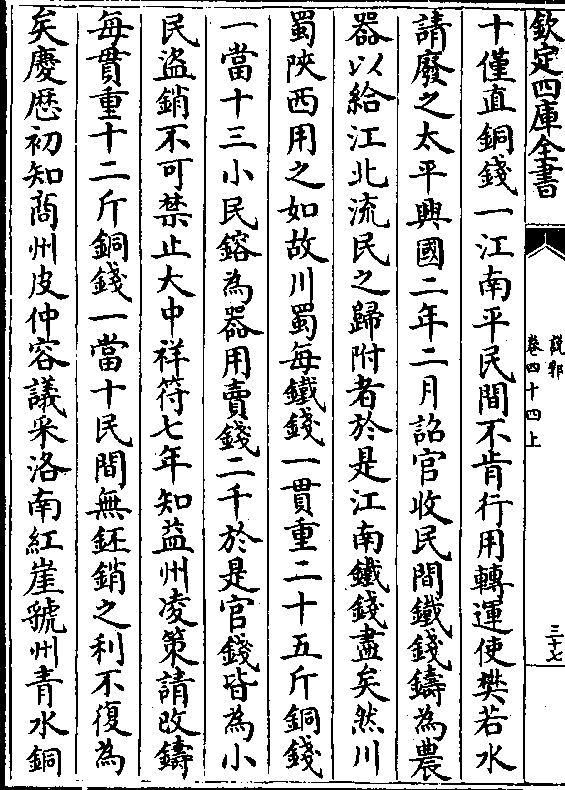 欽定四庫全書
說郛
卷四十四上
三十七
十僅直銅錢一江南平民間不肯行用轉運使樊若水
請廢之太平興國二年二月詔官收民間鐵錢鑄為農
器以給江北流民之歸附者於是江南鐵錢盡矣然川
蜀陝西用之如故川蜀每鐵錢一貫重二十五斤銅錢
一當十三小民鎔為器用賣錢二千於是官錢皆為小
民盜銷不可禁止大中祥符七年知益州凌策請改鑄
每貫重十二斤銅錢一當十民間無鈺銷之利不復為
矣慶厯初知商州皮仲容議采洛南紅崖虢州青水銅